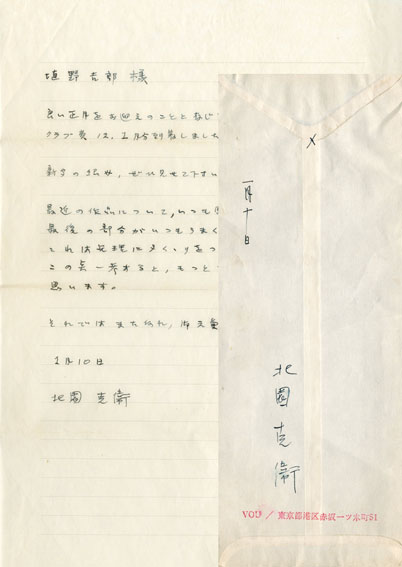 塩野吉郎 様
良い正月をお迎えのことと存じ
クラブ費は、1月分到着しました
新年の
ぜひ見せて下さい
最近の作品について、いつも
最後の部分がいつもうまく
この点一考すると、もっと
思います。
それではまた
1月10日
北園 克衛
一月十日
北園克衛
VOU / 東京都港区赤坂一ツ木町51